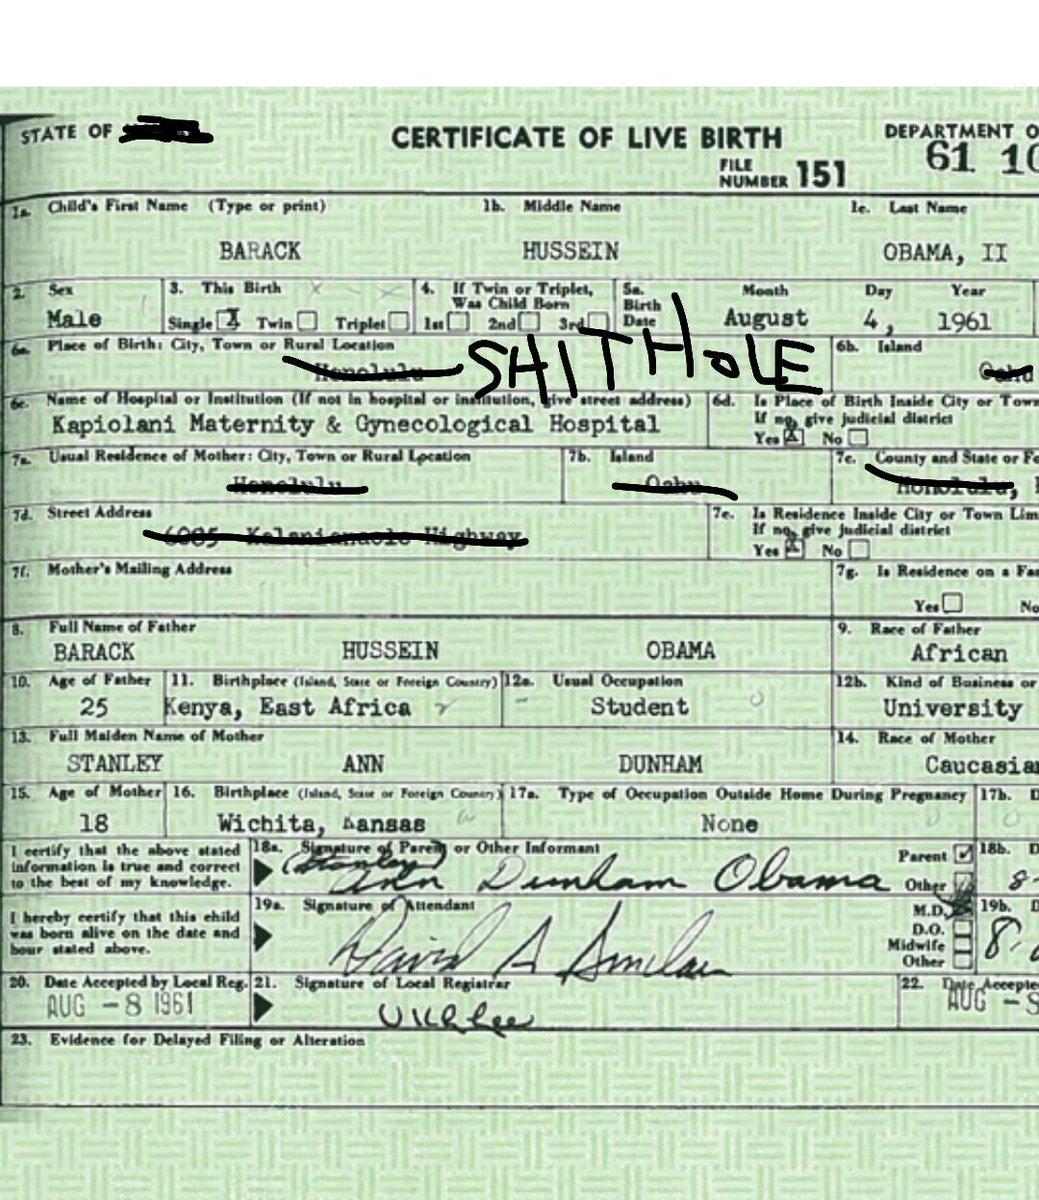 STATE OF
CERTIFICATE OF LIVE BIRTH
DEPARTMENT O
FILE NUMBER 151
61 10
1a. Child's First Name (Type or print) 1b. Middle Name 1c. Last Name
BARACK HUSSEIN OBAMA, II
2. Sex 3. This Birth 4. If Twin or Triplet, Was Child Born 5a. Birth Date Month Day Year
Male Single Twin Triplet 1st 2nd 3rd August 4, 1961
6a. Place of Birth: City, Town or Rural Location 6b. Island
Honolulu SHITHOLE Oahu
6c. Name of Hospital or Institution (If not in hospital or institution, give street address) 6d. Is Place of Birth Inside City or Town
If no, give judicial district
Kapiolani Maternity & Gynecological Hospital Yes No
7a. Usual Residence of Mother: City, Town or Rural Location 7b. Island 7c. County and State or Fo
Honolulu Oahu Honolulu,
7d. Street Address 7e. Is Residence Inside City or Town Lim
If no, give judicial district
6085 Kalanianaole Highway Yes No
7f. Mother's Mailing Address 7g. Is Residence on a Fa
Yes No
8. Full Name of Father 9. Race of Father
BARACK HUSSEIN OBAMA African
10. Age of Father 11. Birthplace (Island, State or Foreign Country) 12a. Usual Occupation 12b. Kind of Business or
25 Kenya, East Africa Student University
13. Full Maiden Name of Mother 14. Race of Mother
STANLEY ANN DUNHAM Caucasian
15. Age of Mother 16. Birthplace (Island, State or Foreign Country) 17a. Type of Occupation Outside Home During Pregnancy 17b. D
18 Wichita, Kansas None
I certify that the above stated information is true and correct to the best of my knowledge.
18a. Signature of Parent or Other Informant Parent Other 18b. D
(Stanley) Ann Dunham Obama 8-
I hereby certify that this child was born alive on the date and hour stated above.
19a. Signature of Attendant M.D. D.O. Midwife Other 19b. D
David A Sinclair 8-
20. Date Accepted by Local Reg. 21. Signature of Local Registrar 22. Date Accepted
AUG -8 1961 U K L Lee AUG -8
23. Evidence for Delayed Filing or Alteration